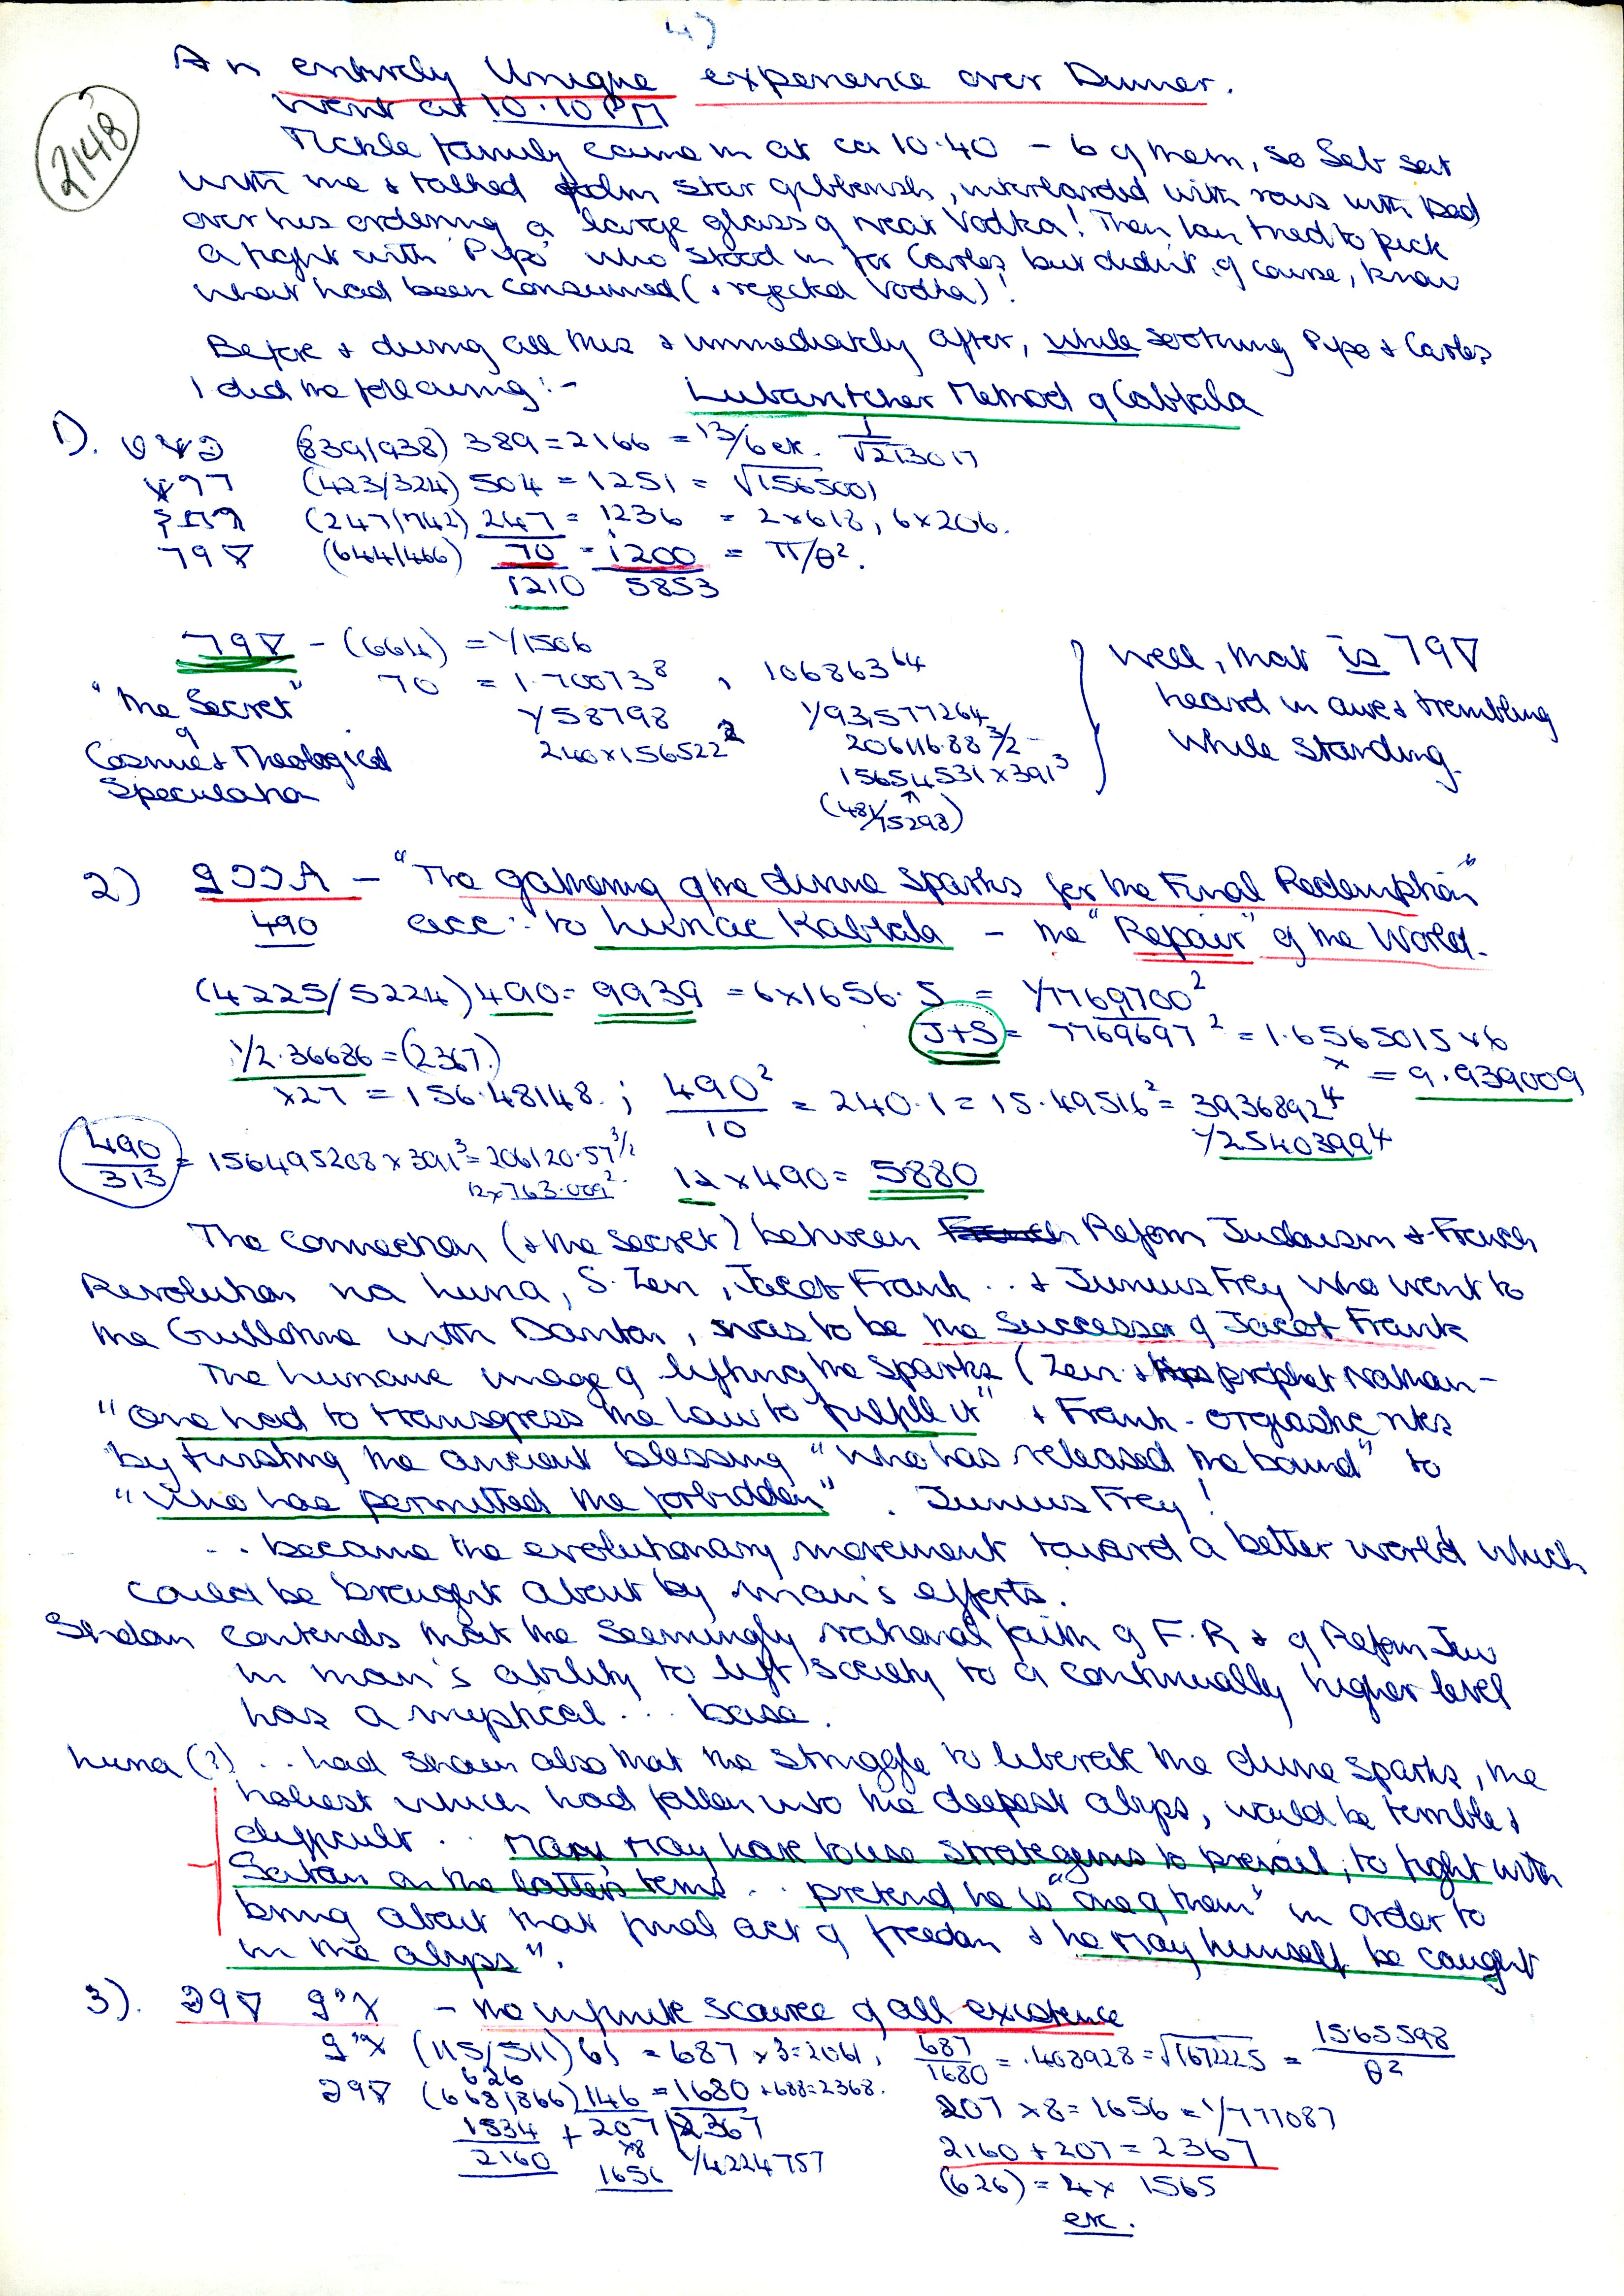 4)
2148
An entirely Unique experience over Dinner.
Went at 10.10 PM
Tickle family came in at ca 10.40 – 6 of them, so Seb sat
with me & talked film star gibberish, interlarded with rows with Dad
over his ordering a large glass of neat Vodka! Then Ian tried to pick
a fight with 'Pipo' who stood in for Carlos, but didn't, of course, know
what had been consumed (& rejected Vodka)!
Before & during all this & immediately after, while soothing Pipo & Carlos
I did the following:-
Method of Cabbala
1).
(839/938) 389 = 2166 = 13/6 etc. 1/√213017
(423/324) 504 = 1251 = √1565001
(247/742) 247 = 1236 = 2×618, 6×206.
(644/466) 70 = 1200 = π/θ².
1210 5853
- (664) = 1/1506
70 = 1.70073⁸, 106863⁶⁴
"The Secret" 1/58798 1/93,577264
of 240×156522² 206116.88 3/2
Cosmic & Theological 15654531×391³
Speculation (48/75298)
Well, that is
heard in awe & trembling
while standing.
2) – "The gathering of the divine Sparks for the Final Redemption"
490 acc: to Lurianic Kabbala – the "Repair" of the World.
(4225/5224) 490 = 9939 = 6×1656.5 = 1/7769700²
J+S = 7769697² = 1.6565015 × 6
1/2.36686 = (2367.) = 9.939009
×27 = 156.48148.; 490²/10 = 240.1 = 15.49516² = 3936892⁴
1/2540399⁴
490/313 = 156495208×391³ = 206120.57 3/2
12×763.009² 12×490 = 5880
The connection (& the Secret) between Reform Judaism & French
Revolution via Luria, S. Zevi, Jacob Frank .. & Junius Frey who went to
the Guillotine with Danton, was to be the Successor of Jacob Frank
The Lurianic image of lifting the Sparks (Zevi & his prophet Nathan –
"One had to transgress the Law to fulfill it" & Frank - orgiastic rites
by twisting the ancient blessing "who has released the bound" to
"Who has permitted the forbidden". Junius Frey!
.. became the evolutionary movement toward a better world which
could be brought about by man's efforts.
contends that the Seemingly rational faith of F.R & of Reform Jew
in man's ability to lift society to a continually higher level
has a mystical ... base.
Luria (?) .. had shown also that the struggle to liberate the divine sparks, the
holiest which had fallen into the deepest abyss, would be terrible &
difficult .. Man may have to use strategems to prevail; to fight with
Satan on the latter's terms .. pretend he is "one of them" in order to
bring about that final act of freedom & he may himself be caught
in the abyss".
3). – the infinite source of all existence
(115/511) 61 = 687 ×3=2061, 687/1680 = .408928 = √1672225 = 1565598/θ²
626
(668/866) 146 = 1680 +688=2368.
1534 + 207 / 2367 207 ×8 = 1656 = 1/777087
2160 ×8 1656 1/4224757 2160 + 207 = 2367
(626) = 4× 1565
etc.